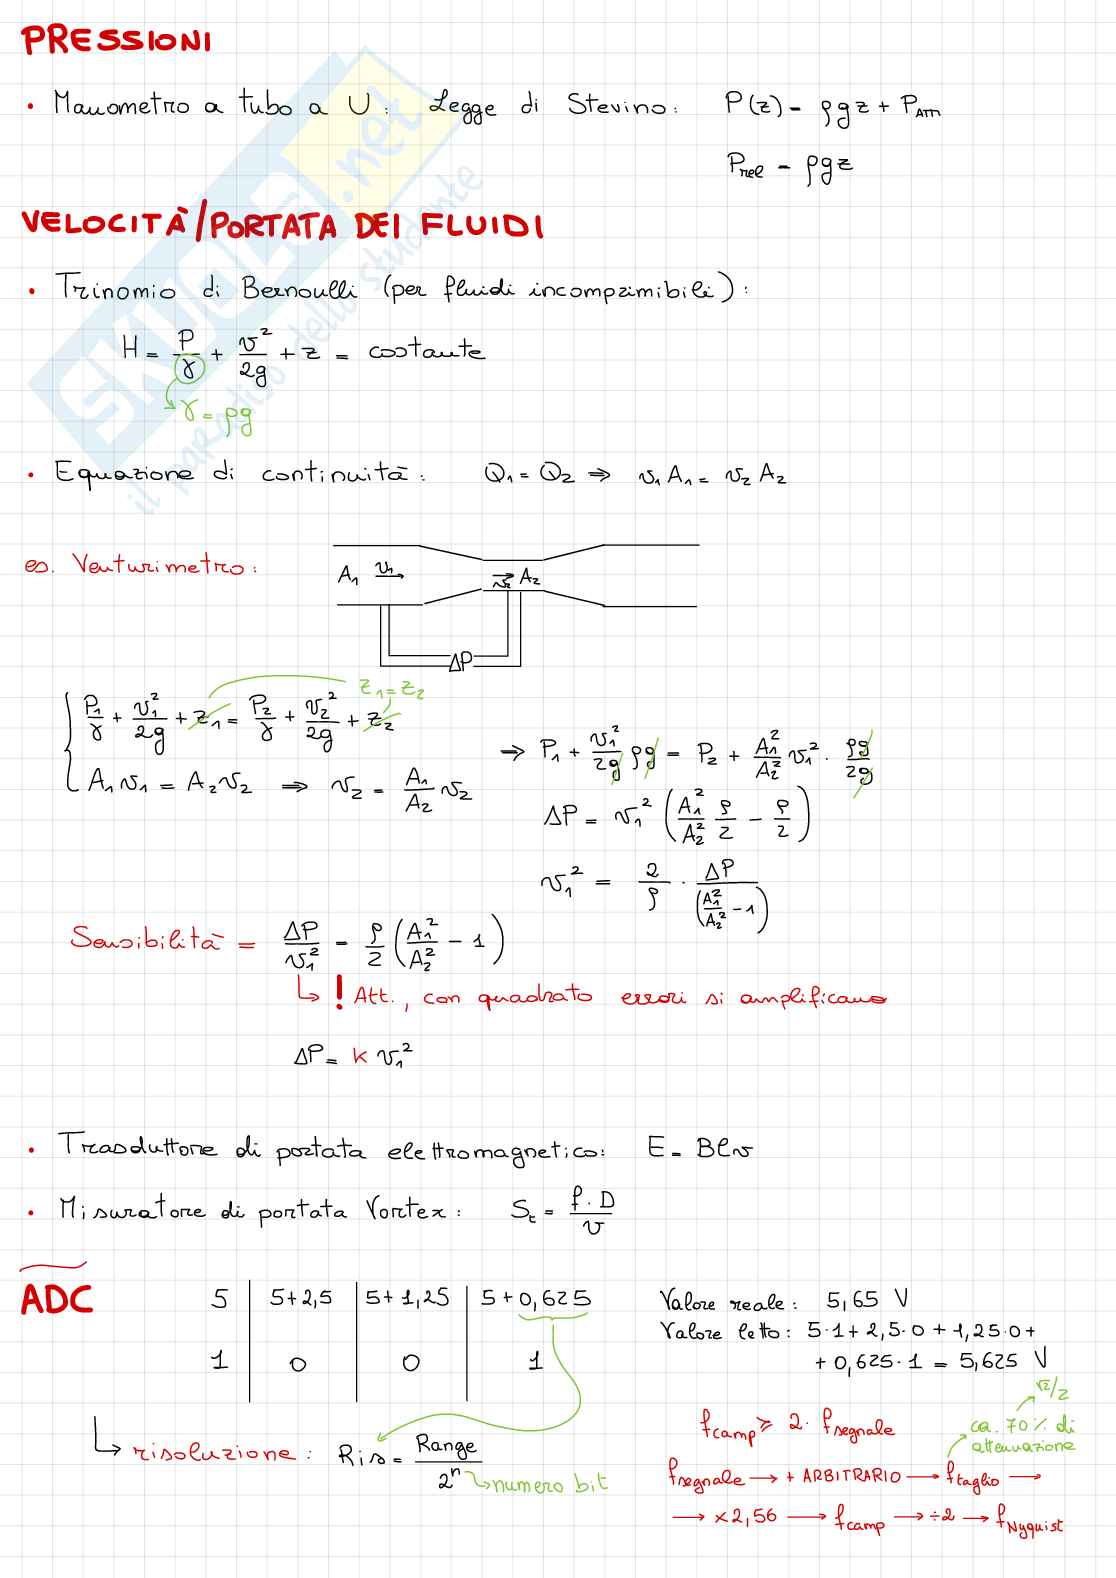 PRESSIONI
• Manometro a tubo a U: Legge di Stevino: P(z) = ρgz + P_ATM
P_rel = ρgz
VELOCITÀ/PORTATA DEI FLUIDI
• Trinomio di Bernoulli (per fluidi incomprimibili):
H = P/γ + v²/2g + z = costante
γ = ρg
• Equazione di continuità: Q₁ = Q₂ ⇒ v₁A₁ = v₂A₂
es. Venturimetro:
A₁ v₁ v₂ A₂
ΔP
z₁ = z₂
P₁/γ + v₁²/2g + z₁ = P₂/γ + v₂²/2g + z₂
A₁v₁ = A₂v₂ ⇒ v₂ = A₁/A₂ v₂
⇒ P₁ + v₁²/2g ρg = P₂ + A₁²/A₂² v₁² · ρg/2g
ΔP = v₁² (A₁²/A₂² ρ/2 - ρ/2)
v₁² = 2/ρ · ΔP/(A₁²/A₂² - 1)
Sensibilità = ΔP/v₁² = ρ/2 (A₁²/A₂² - 1)
↳ ! Att., con quadrato errori si amplificano
ΔP = k v₁²
• Trasduttore di portata elettromagnetico: E = Blv
• Misuratore di portata Vortex: S_t = f·D/v
ADC
5 | 5+2,5 | 5+1,25 | 5+0,625
1 | 0 | 0 | 1
Valore reale: 5,65 V
Valore letto: 5·1 + 2,5·0 + 1,25·0 +
+ 0,625·1 = 5,625 V
↳ risoluzione: Ris = Range/2ⁿ → numero bit
f_camp ≥ 2 · f_segnale
√2/2
ca. 70% di
attenuazione
f_segnale → + ARBITRARIO → f_taglio →
→ ×2,56 → f_camp → ÷2 → f_Nyquist
SKUOLA.net
il paradiso dello studente